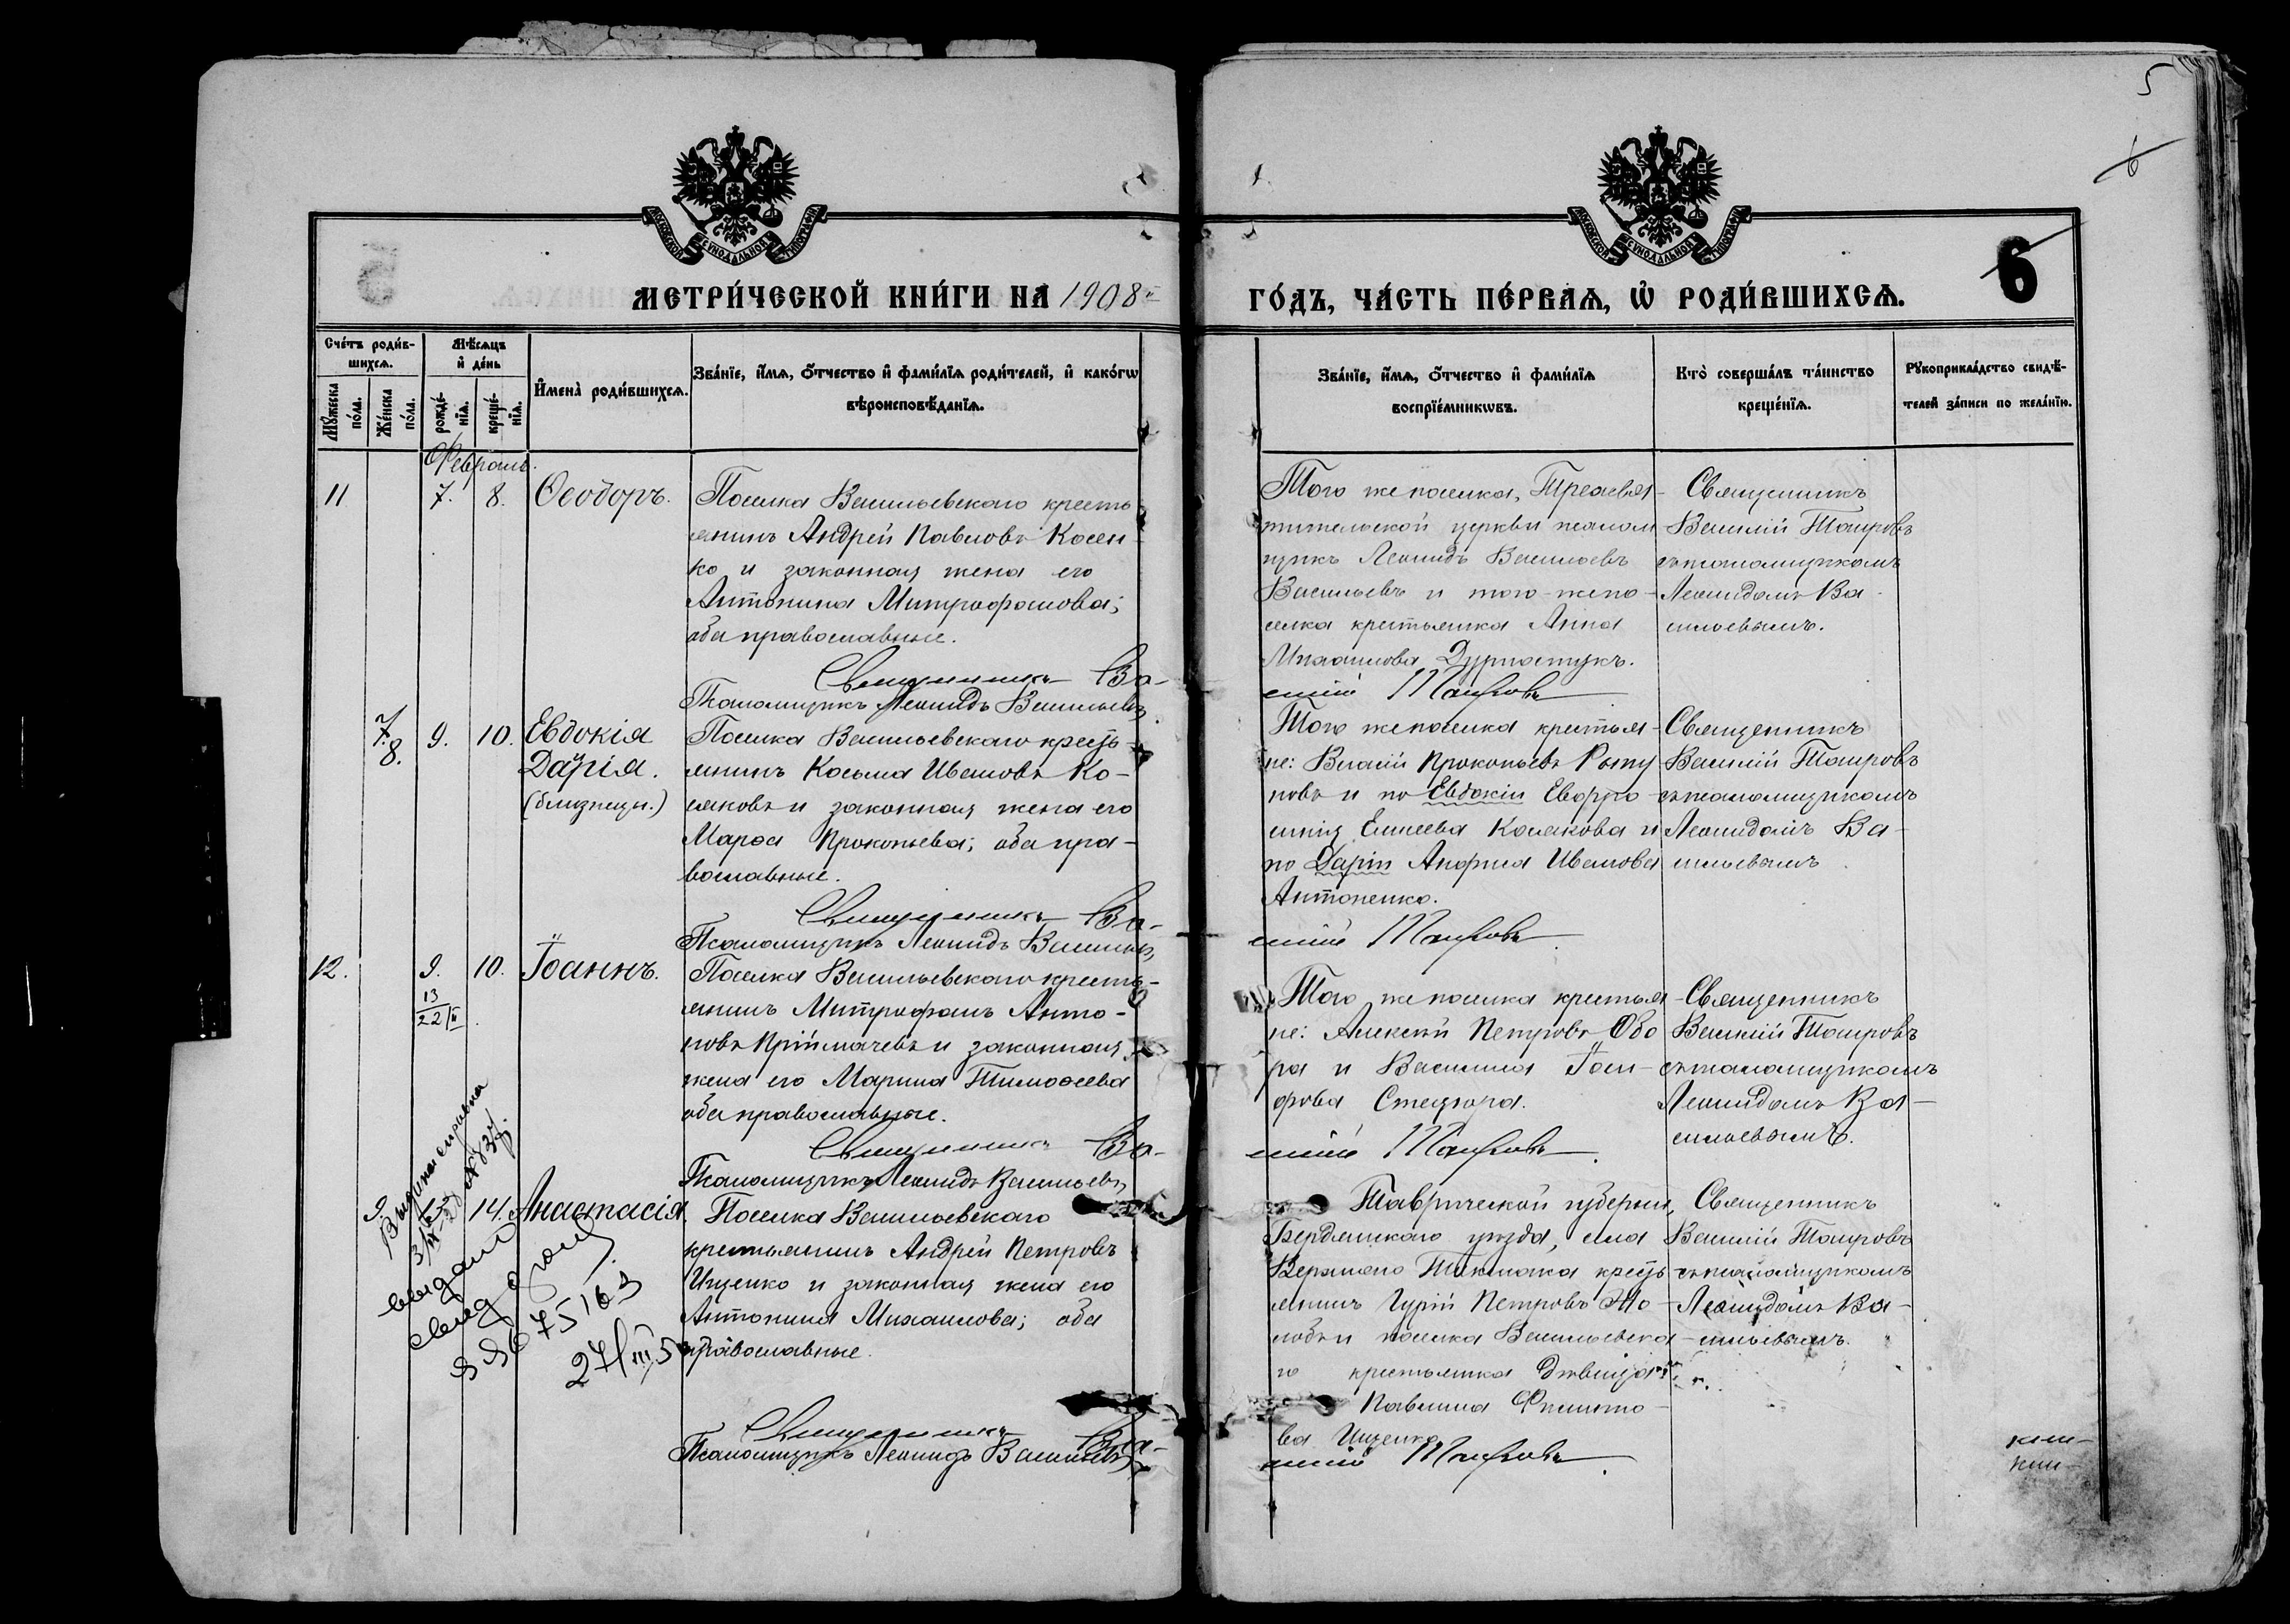 5
6
МОСКОВСКОЙ СѴНОДАЛЬНОЙ ТИПОГРАФІИ
МОСКОВСКОЙ СѴНОДАЛЬНОЙ ТИПОГРАФІИ
6
МЕТРИ́ЧЕСКОЙ КНИ́ГИ НА 1908й
ГО́ДЪ, ЧА́СТЬ ПЕ́РВАѦ, Ѡ҆ РОДИ́ВШИХСѦ.
Сче́тъ роди́в-
шихсѧ.
Мꙋ́жеска по́ла.
Же́нска по́ла.
Мѣ́сѧцъ
и҆ де́нь
рожде́-нїѧ.
креще́-нїѧ.
И҆мена̀ роди́вшихсѧ.
Зва́нїе, и҆́мѧ, ѻ҆́тчество и҆ фами́лїѧ роди́телей, и҆ како́гѡ
вѣроисповѣ́данїѧ.
Зва́нїе, и҆́мѧ, ѻ҆́тчество и҆ фами́лїѧ
воспрїе́мникѡвъ.
Кто̀ соверша́лъ та́инство
креще́нїѧ.
Рꙋкоприкла́дство свидѣ́-
телей за́писи по жела́нїю.
Февраль.
11 7. 8. Ѳеодоръ.
Поселка Васильевскаго кресть
янинъ Андрей Павловъ Косен-
ко и законная жена его
Антонина Митрофанова;
оба православные.
Священникъ Ва-
Псаломщикъ Леонидъ Васильевъ
Того же поселка, Трехсвя-
тительской церкви псалом
щикъ Леонидъ Васильевъ
Васильевъ и того-же по-
селка крестьянка Анна
Михаилова
силій Таировъ
Священникъ
Василій Таировъ
съ псаломщикомъ
Леонидомъ Ва-
сильевымъ.
7. 8. 9. 10. Евдокія
Дарія.
(близнецы.)
Поселка Васильевскаго кресть-
янинъ Косьма Ивановъ Ко-
саковъ и законная жена его
Марѳа Прокопьева; оба пра-
вославные.
Священникъ Ва-
Псаломщикъ Леонидъ Васильевъ
Того же поселка крестья-
не: Власій Прокопьевъ
новъ и по Евдокіи Евфро-
синія Елисеева Косакова и
по Даріи Анфиса Иванова
Антоненко.
силій Таировъ
Священникъ
Василій Таировъ
съ псаломщикомъ
Леонидомъ Ва-
сильевымъ
12. 9. 10. Іоаннъ.
13
22/II
Поселка Васильевскаго кресть-
янинъ Митрофанъ Анто-
новъ Пріймачевъ и законная
жена его Марина Тимоѳеева
оба православные.
Священникъ Ва-
Псаломщикъ Леонидъ Васильевъ
Того же поселка крестья
не: Алексѣй Петровъ Обо
ра и Василиса
силій Таировъ
Священникъ
Василій Таировъ
съ псаломщикомъ
Леонидомъ Ва-
сильевымъ.
9. 14. Анастасія.
Поселка Васильевскаго
крестьянинъ Андрей Петровъ
Ищенко и законная жена его
Антонина Михаилова; оба
православные.
Священникъ Ва-
Псаломщикъ Леонидъ Васильевъ
Таврической губерніи,
Бердянскаго уѣзда, села
Верхняго Токмака кресть
янинъ Гурій Петровъ
и поселка Васильевска-
го крестьянка дѣвица
Павлина Филиппо-
ва Ищенко
силій Таировъ
Священникъ
Василій Таировъ
съ псаломщикомъ
Леонидомъ Ва-
сильевымъ.
Выдана справка
выдано
свид
27/III 5